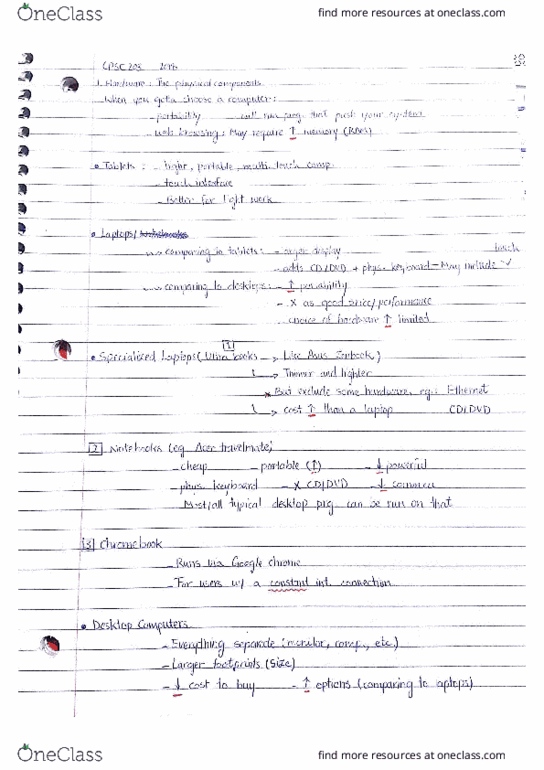 OneClass
find more resources at oneclass.com
CPSC 203 2018
1. Hardware: The physical components
When you gotta choose a computer:
- portability - can run prog. that push your system
- web browsing: May require ↑ memory (RAM)
• Tablets: - light, portable, multi touch comp
- touch interface
- Better for light work
• Laptops/
comparing to tablets: - larger display
touch
- adds CD/DVD + phys. keyboard - May include
comparing to desktops: - ↑ portability
- X as good price/performance
- choice of hardware ↑ limited
1
• Specialized Laptops (Ultra books → Like Asus Zenbook)
→ Thinner and lighter
But exclude some hardware, eg: Ethernet
→ cost ↑ than a laptop CD/DVD
2 Notebooks (eg. Acer travelmate)
- cheap - portable (↑) - ↓ powerful
- phys. keyboard - X CD/DVD - ↓
Most/all typical desktop prg. can be run on that
3 Chromebook
- Runs via Google chrome
- For users w/ a constant int. connection
• Desktop Computers
- Everything separate (monitor, comp, etc.)
- Larger footprints (size)
- ↓ cost to buy - ↑ options (comparing to laptops)
OneClass
find more resources at oneclass.com